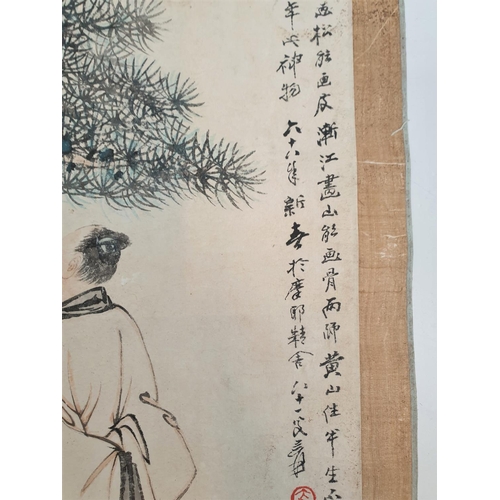 画松能画皮漸江畫山能画骨両師黄山住半生不
年此神物 六十八年新春於摩耶精舍 八十一叟爰